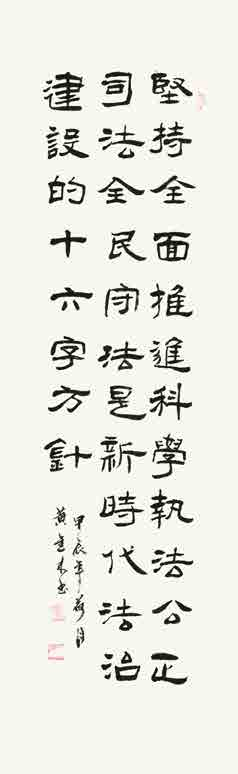 堅持全面推進科學執法公正
司法全民守法是新時代法治
建設的十六字方針
甲辰年荷月
黄金 书